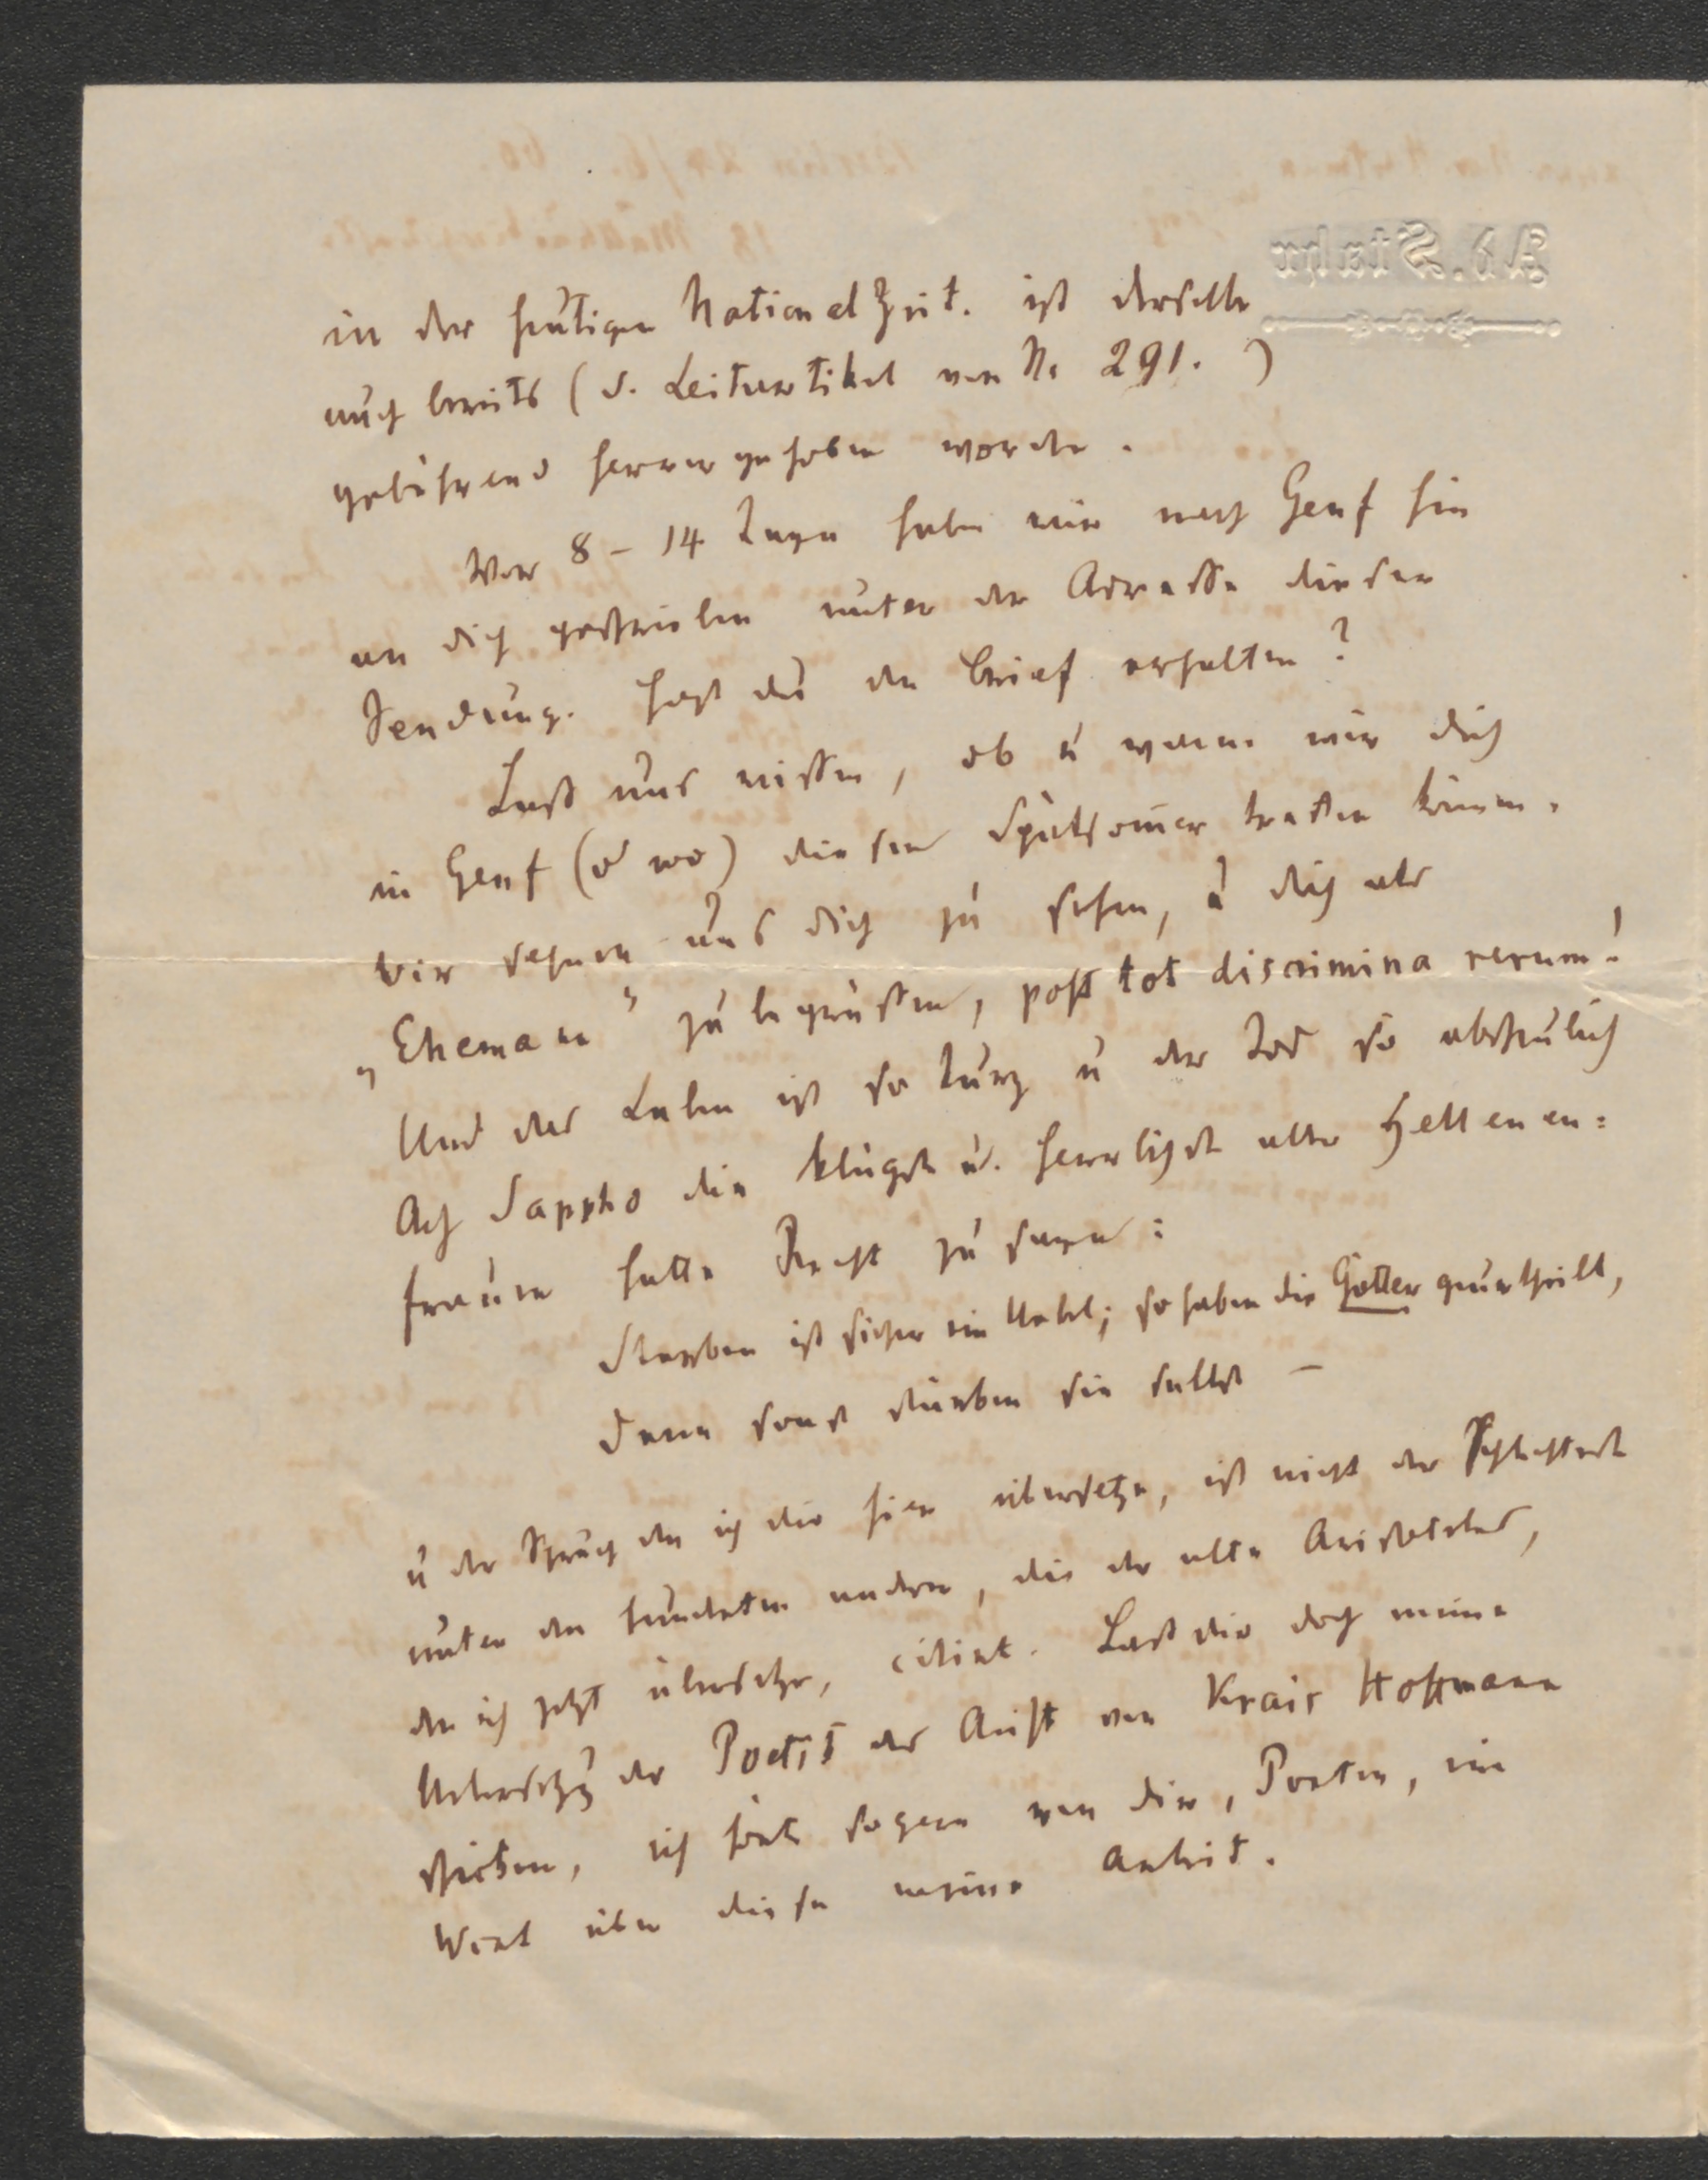 Ad. Stahr
in der heutigen National Zeit. ist derselbe
auch bereits (s. Leitartikel von No 291.)
gebührend hervorgehoben worden.
Vor 8 – 14 Tagen haben wir nach Genf hin
an dich geschrieben unter der Adresse dieser
Sendung. Hast du den Brief erhalten?
Laß uns wissen, ob u wann wir dich
in Genf (od wo) diesen Spätsomer treffen könen.
Wir sehnen uns dich zu sehen, u dich als
„Ehemann“ zu begrüßen, post tot discrimina rerum!
Und das Leben ist so kurz u der Tod so abscheulich
Ach Sappho die klügste u. herrlichste aller Hellenen=
frauen hatte Recht zu sagen:
Sterben ist sicher ein Uebel; so haben die Götter geurtheilt,
Denn sonst stürben sie selbst –
u der Spruch den ich dir hier übersetze, ist nicht der Schlechteste
unter den hunderten andern, die der alte Aristoteles,
den ich jetzt übersetze, citirt. Laß dir doch meine
Uebersetzg der Poetik des Arist von Krais Hoffmann
schicken, ich hörte so gern von dir, Poeten, ein
Wort über diese meine Arbeit.